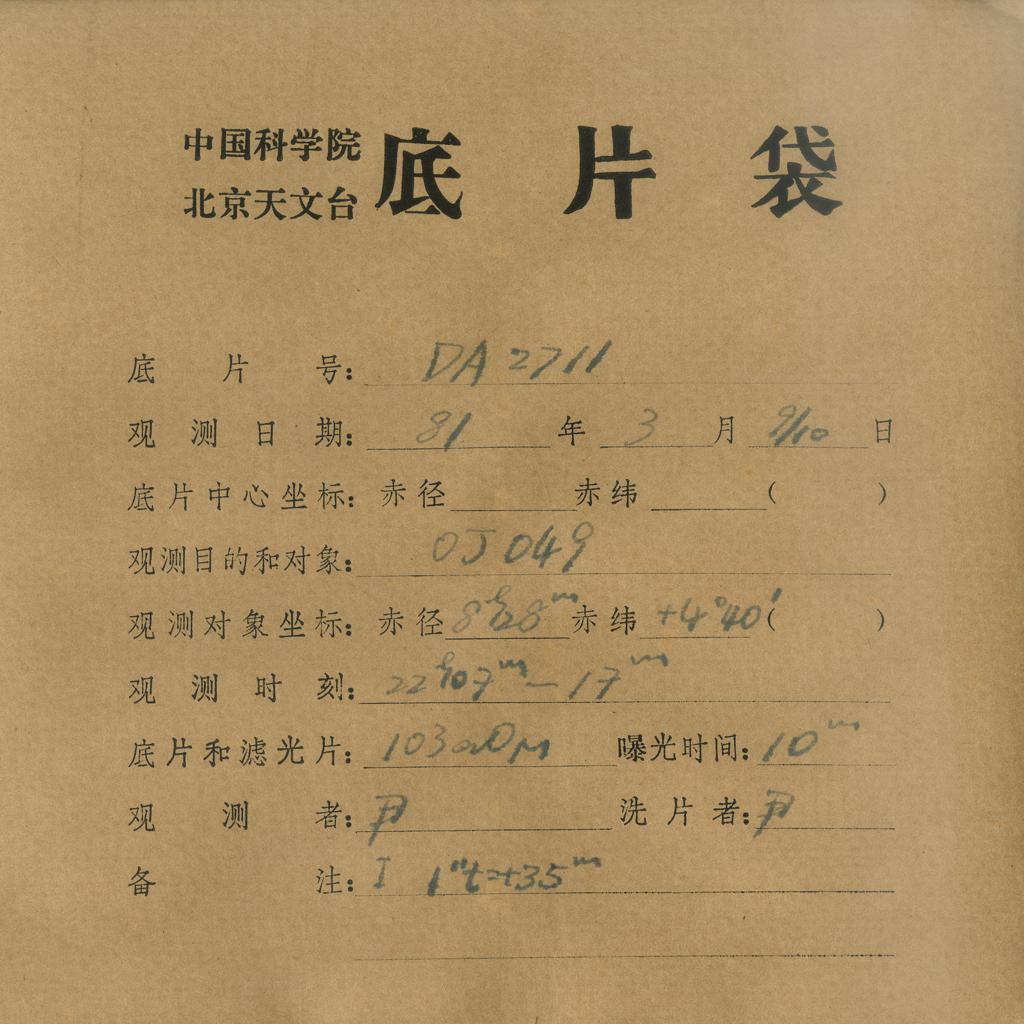 中国科学院
北京天文台
底片袋
底片号: DA 2711
观测日期: 81 年 3 月 9/10 日
底片中心坐标: 赤径 赤纬 ( )
观测目的和对象: OJ 049
观测对象坐标: 赤径 8h28m 赤纬 +4°40′ ( )
观测时刻: 22h07m — 17m
底片和滤光片: 103aO 曝光时间: 10m
观测者: 尹 洗片者: 尹
备注: I 1" t=+35m